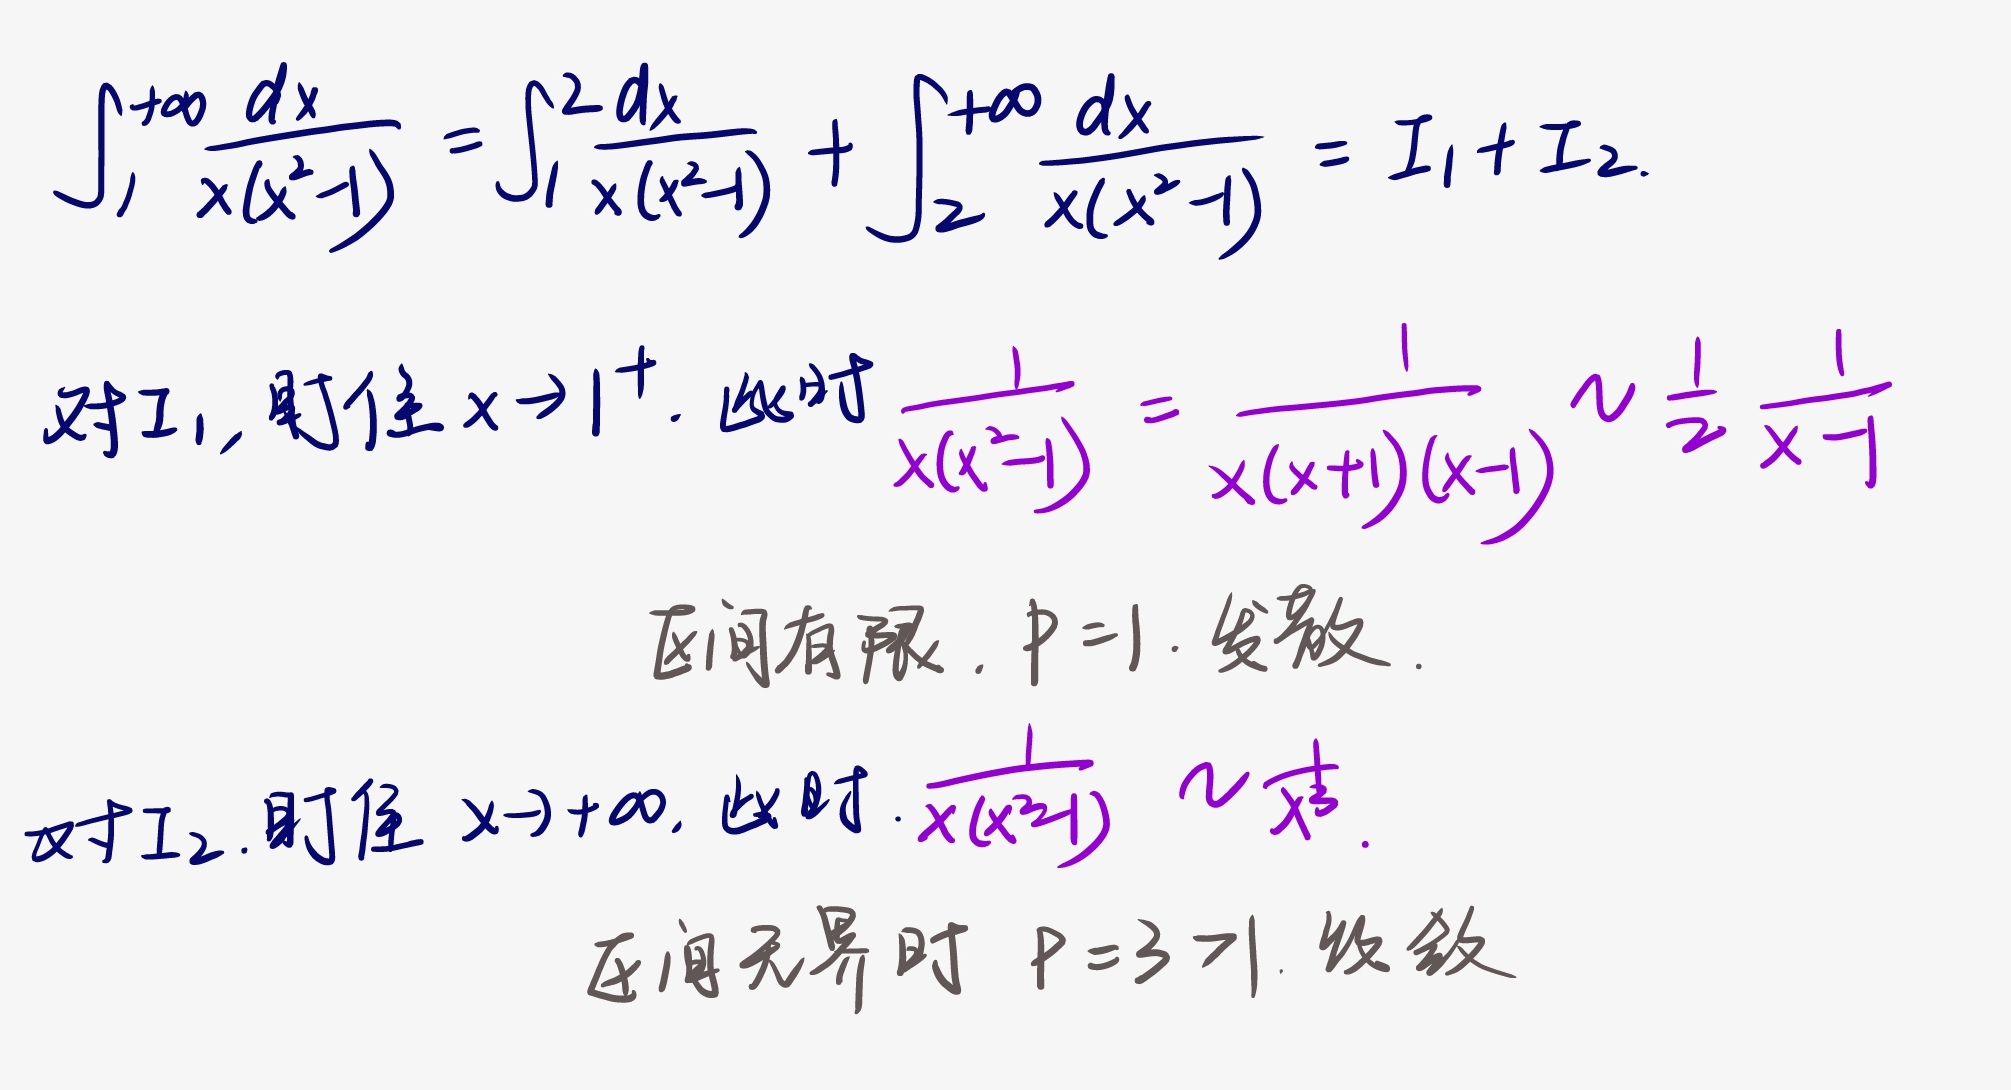 ∫₁^{+∞} dx/(x(x²-1)) = ∫₁² dx/(x(x²-1)) + ∫₂^{+∞} dx/(x(x²-1)) = I₁ + I₂.
对I₁, 时 x→1⁺. 此时 1/(x(x²-1)) = 1/(x(x+1)(x-1)) ~ 1/2 1/(x-1)
区间有限. P=1. 发散.
对I₂. 时 x→+∞, 此时. 1/(x(x²-1)) ~ 1/x³.
区间无界时 P=3>1. 收敛